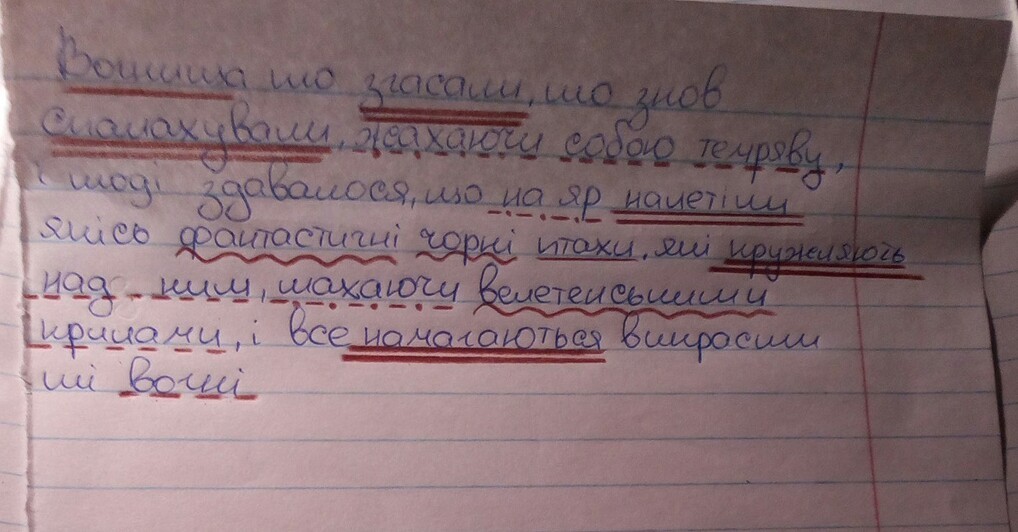 Вогнища то згасали, то знов
спалахували, жахаючи собою темряву,
і тоді здавалося, що на яр налетіли
якісь фантастичні чорні птахи, які кружляють
над ним, махаючи велетенськими
крилами, і все намагаються викрасти
ці вогні